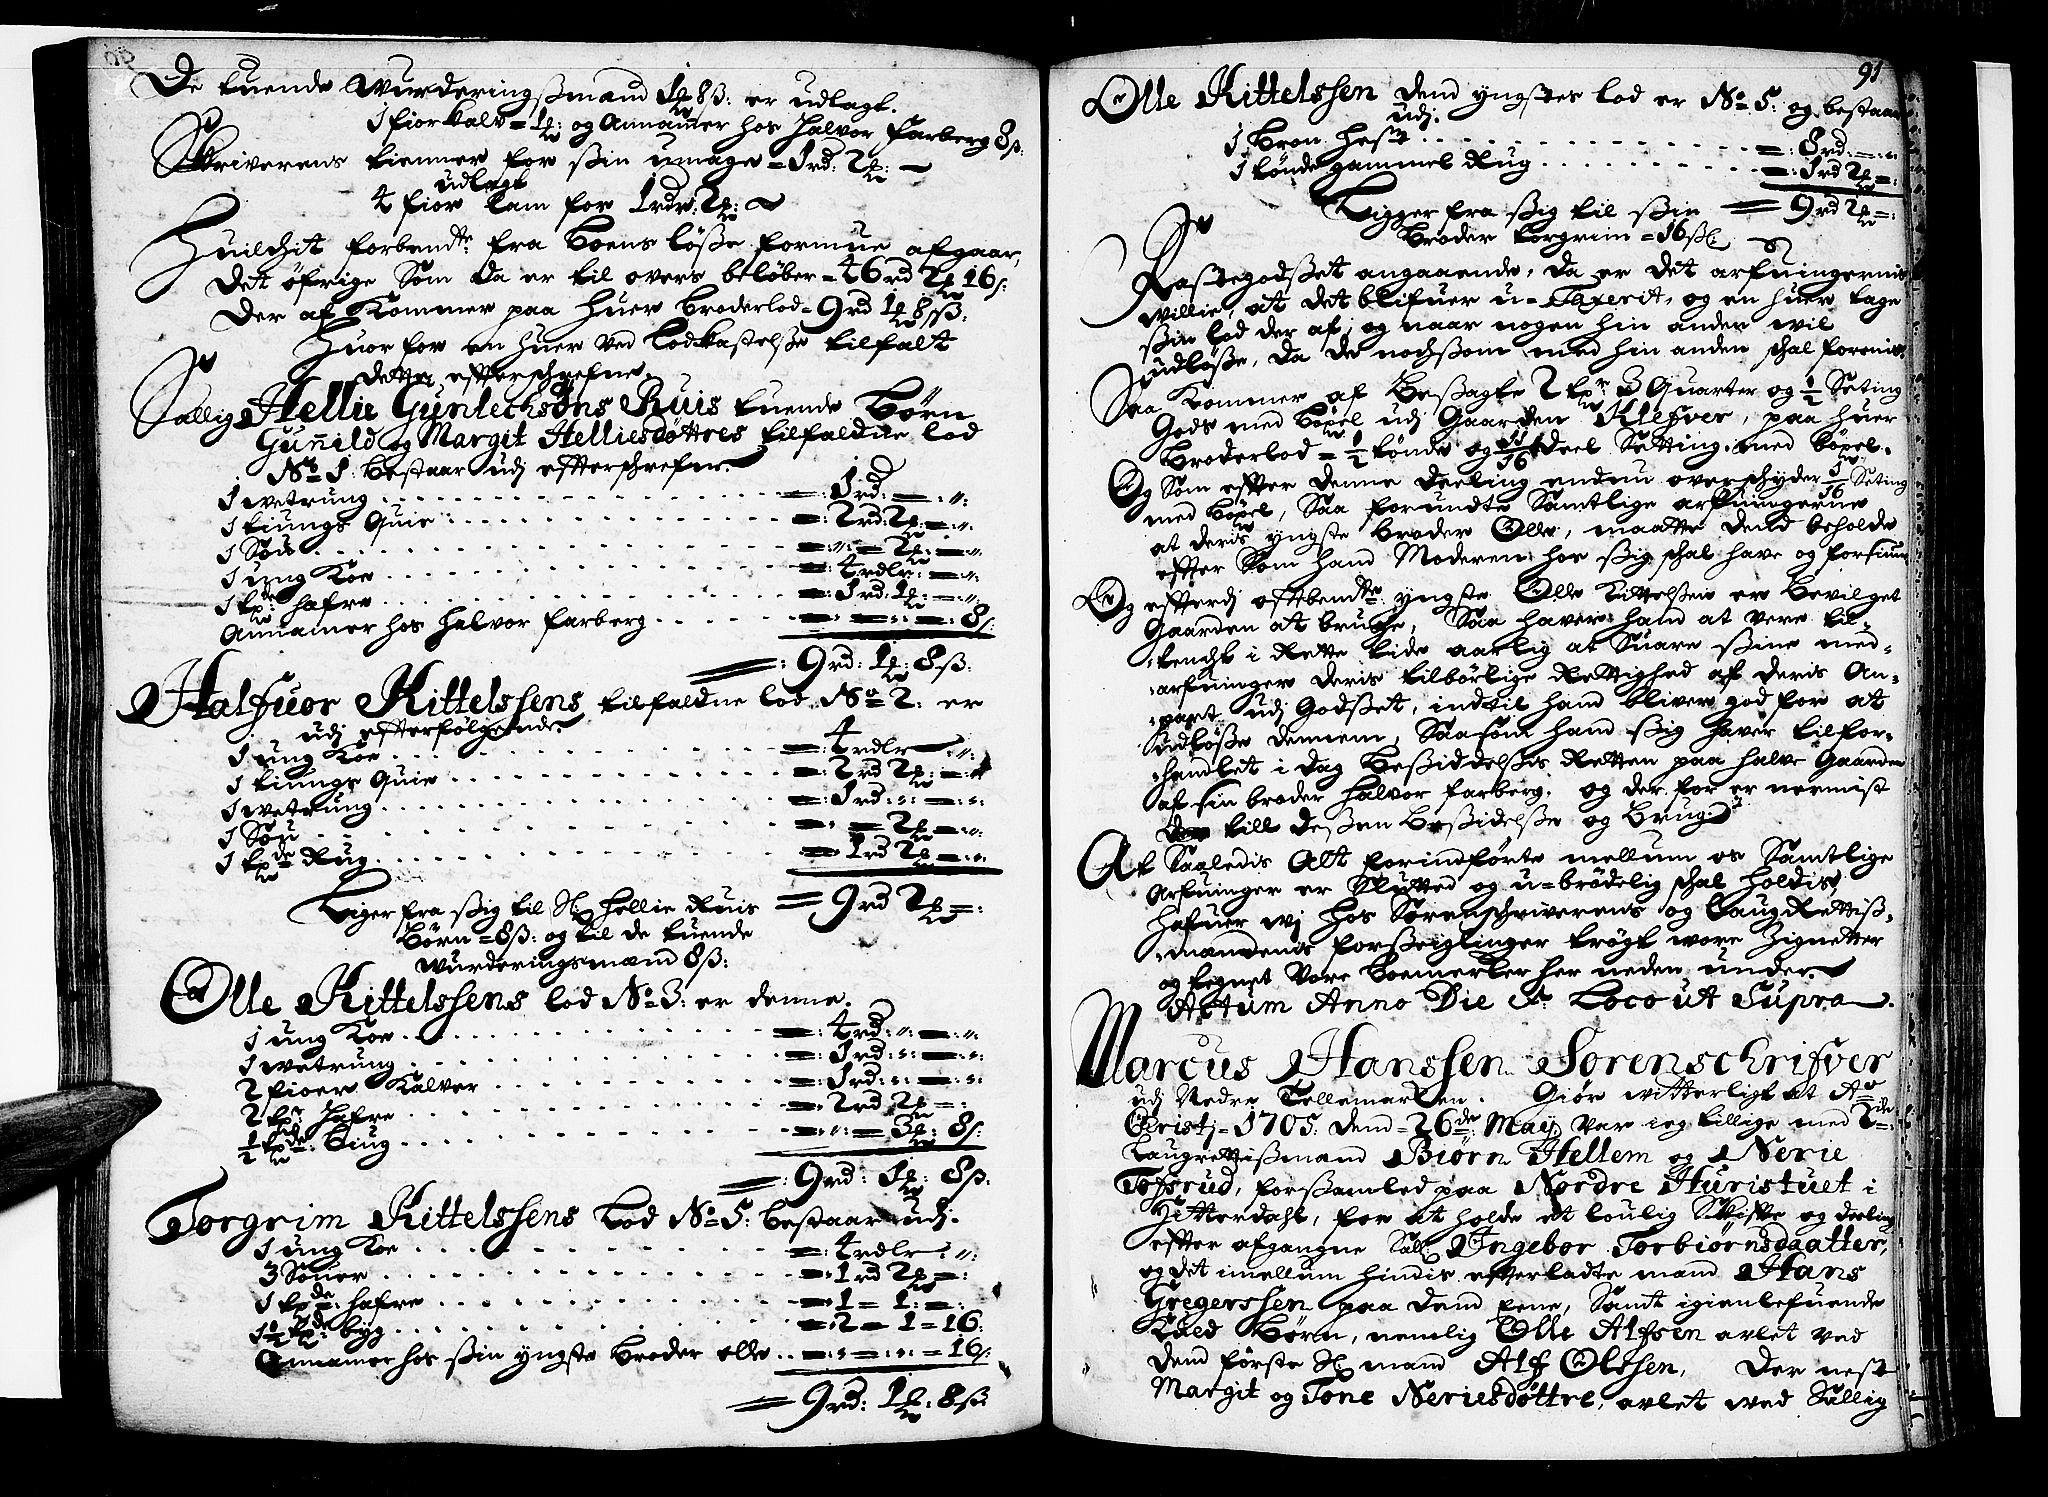 De tuende Wurderingsmænd 1 8ß: er udlagt.
1 fior Kalv = 1 : og Annamer hos Halvor Farberg 8ß:
Skriverens tienner for sin umage = 1rd: 2 : —
udlagt
4 fior Lam for 1rdr: 2 : —
Huilchit forbendte fra Boens løse formue afgaar,
Det øfrige Som da er til overs beløber = 46rd 2 16ß:
Der af Kommer paa Huer Broderlod = 9rd 1 8ß:
Huor for en huer ved Lodkastelse tilfalt
dette effterschrefne.
Sallig Hellie Gunlechsøns Ruis tuende Børn
Gunnild og Margit Helliesdøttres tilfaldne lod
No 1 Bestaar udj effterschrefne.
1 wetrung . . . = 1rd: = : "
1 tiungs Quie . . . = 2rd: 2 : = "
1 Sou . . . = " = 2 : = "
1 ung Koe . . . = 4rdlr: = : "
1 tde: hafre . . . = 1rd: 1 : = : "
Annamer hos Halvor Farberg . . . = = = : 8ß:
= : 9rd: 1 : 8ß:
Halfuor Kittelssens tilfaldne lod No 2: er
udj efterfølgende.
1 ung Koe . . . = 4rdlr "
1 tiungs Quie . . . = 2rd 2 : =
1 wetrung . . . = 1rd: " = : "
1 Sou . . . = = 2 = : "
1 tde Rug . . . = 1rd 2 = : "
= 9rd 2 = :
Ligger fra sig til Sl: Hellie Ruis
Børn = 8ß: og til de tuende
wurderingsmænd 8ß:
Olle Kittelssens lod No 3: er denne.
1 ung Koe . . . = 4rd: " = : "
1 wetrung . . . = 1rd: " = : "
2 fioer Kalver . . . = 1rd: " = : "
2 tr hafre . . . = 2rd 2 = :
1/2 tde: biug . . . = " = 3 : 8ß:
= 9rd: 1 : 8ß:
Torgrim Kittelssens Lod No 5: bestaar udj.
1 ung Koe . . . = 4rdlr: "
3 Souer . . . = 1rd 2 = :
1 tde: hafre . . . = 1 = 1: = :
1 1/2 tde: byg . . . = 2 = 1 = 16:
Annamer hos sin yngste broder olle . . . = = " = 16ß:
= 9rd: 1 : 8ß
91
Olle Kittelssen dend yngstes lod er No 5: og bestaar
udj.
1 Brun Hest . . . = : 8rd: = : "
1 tønde gammel Rug . . . = : 1rd 2 = :
= 9rd 2 = :
Ligger fra sig til sin
Broder Torgrim = 16ß:
Jordegodset angaaende, da er det arfuingernis
willie, at det blifuer u-Taxerit, og en huer tage
sin lod der af, og naar nogen hin anden vil
indløse, da de nochsom med hin anden schal foreenis.
Saa kommer af Besagte 2 tr 3 Quarter og 1/2 Seting
Gods med bøxel udj Gaarden Klefver, paa huer
Broderlod = 1/2 tønde og 11/16 deel Setting med bøxel.
Og Som effter denne deeling endnu overschyder 1/16 Seting
med bøxel, Saa forundte Samtlige arfuingerne
at deris yngste broder Olle, maatte dend beholde
effter Som hand Moderen hos sig schal have og forsiune
Og efftersj offtbendte yngste Olle Kittelsen er bevilget
Gaarden at bruge, Saa haver hand at vere til-
tencht i Rette tide aarlig at Suare sine med-
arfuinger deris tilbørlige Rettighed af deris An-
part udj Godset, indtil hand bliver god for at
udløse dennem, Saasom hand sig haver tilfor-
handlet i dag besiddelsis Retten paa halve Gaarden
af sin broder Halvor Farberg, og der for er nermist
till dessen besidelse og brug.
At Saaledis Alt forindførte mellum os Samtlige
Arfuinger er Sluttet og u-brødelig schal holdis,
hafuer wj hos Sorenschriverens og Laugrettis-
mændenis forseiglinger trøgt wore Zignetter
og tegnet vore boemercker her neden under.
Actum Anno Die & Loco ut Supra.
Marcus Hanssen Sorenschrifver
udj Nedre Tellemarken. Giør witterligt at Ao
Christj = 1705. dend = 26de: Maij var ieg tillige med 2de
Laugrettismænd Biørn Hellem og Nerie
Tofsrud, forsamled paa Nordre Huristuet i
Hitterdahl, for at holde et loulig Skifte og deeling
effter afgangne Sal: Ingebor Torbiørnsdaatter,
og det imellum hindis effterladte mand Hans
Gregerssen paa dend eene, Samt igienlefuende
Kuld Børn, nemlig Olle Alfsen avlet ved
dend første Sl: mand Alf Olssen, Der nest
Margit og Tone Neriesdøttre, avlet wed Sallig